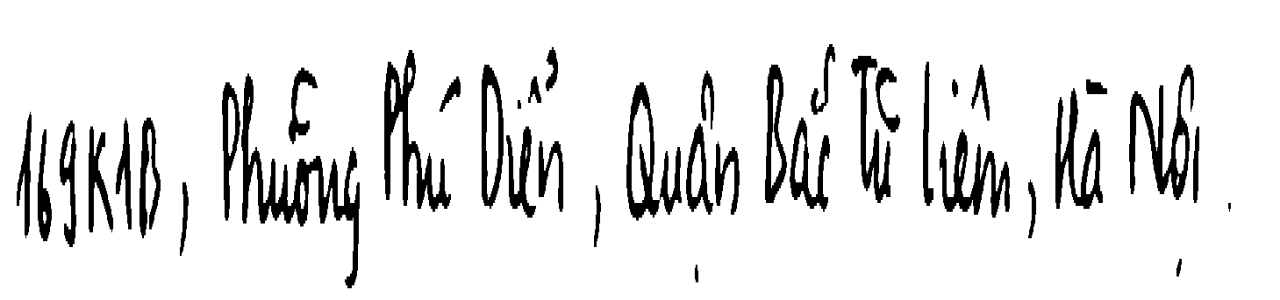 169K1B, Phường Phú Diễn, Quận Bắc Từ Liêm, Hà Nội.